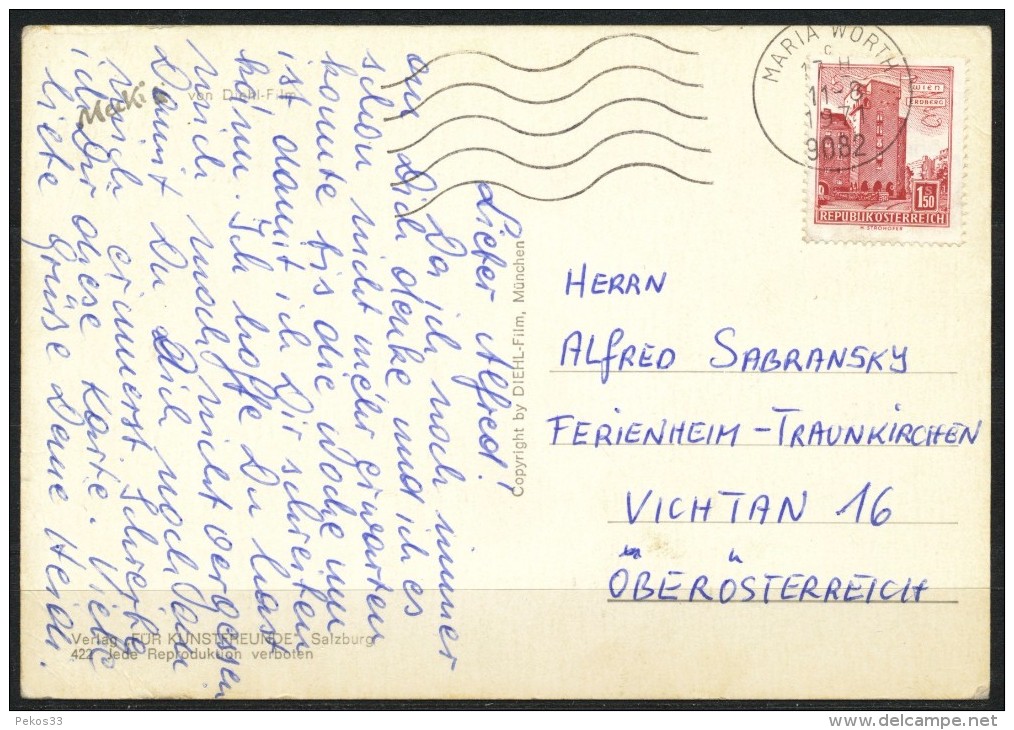 MARIA WÖRTH
c
9082
WIEN
ERDBERG
1.50
S
REPUBLIK ÖSTERREICH
H. STROHOFER
Mecki
von Diehl-Film
Lieber Alfred!
Da ich noch immer
an Dich denke und ich es
schon nicht mehr erwarten
konnte bis die Woche um
ist damit ich Dir schreiben
kann. Ich hoffe Du hast
mich noch nicht vergessen
Damit Du Dich noch an
mich erinnerst schreibe
ich Dir diese Karte. Viele
liebe Grüße Deine Heidi.
Copyright by DIEHL-Film, München
HERRN
ALFRED SABRANSKY
FERIENHEIM - TRAUNKIRCHEN
VICHTAN 16
OBERÖSTERREICH
Verlag „FÜR KUNSTFREUNDE" Salzburg
422 Jede Reproduktion verboten
Pekos33
www.delcampe.net